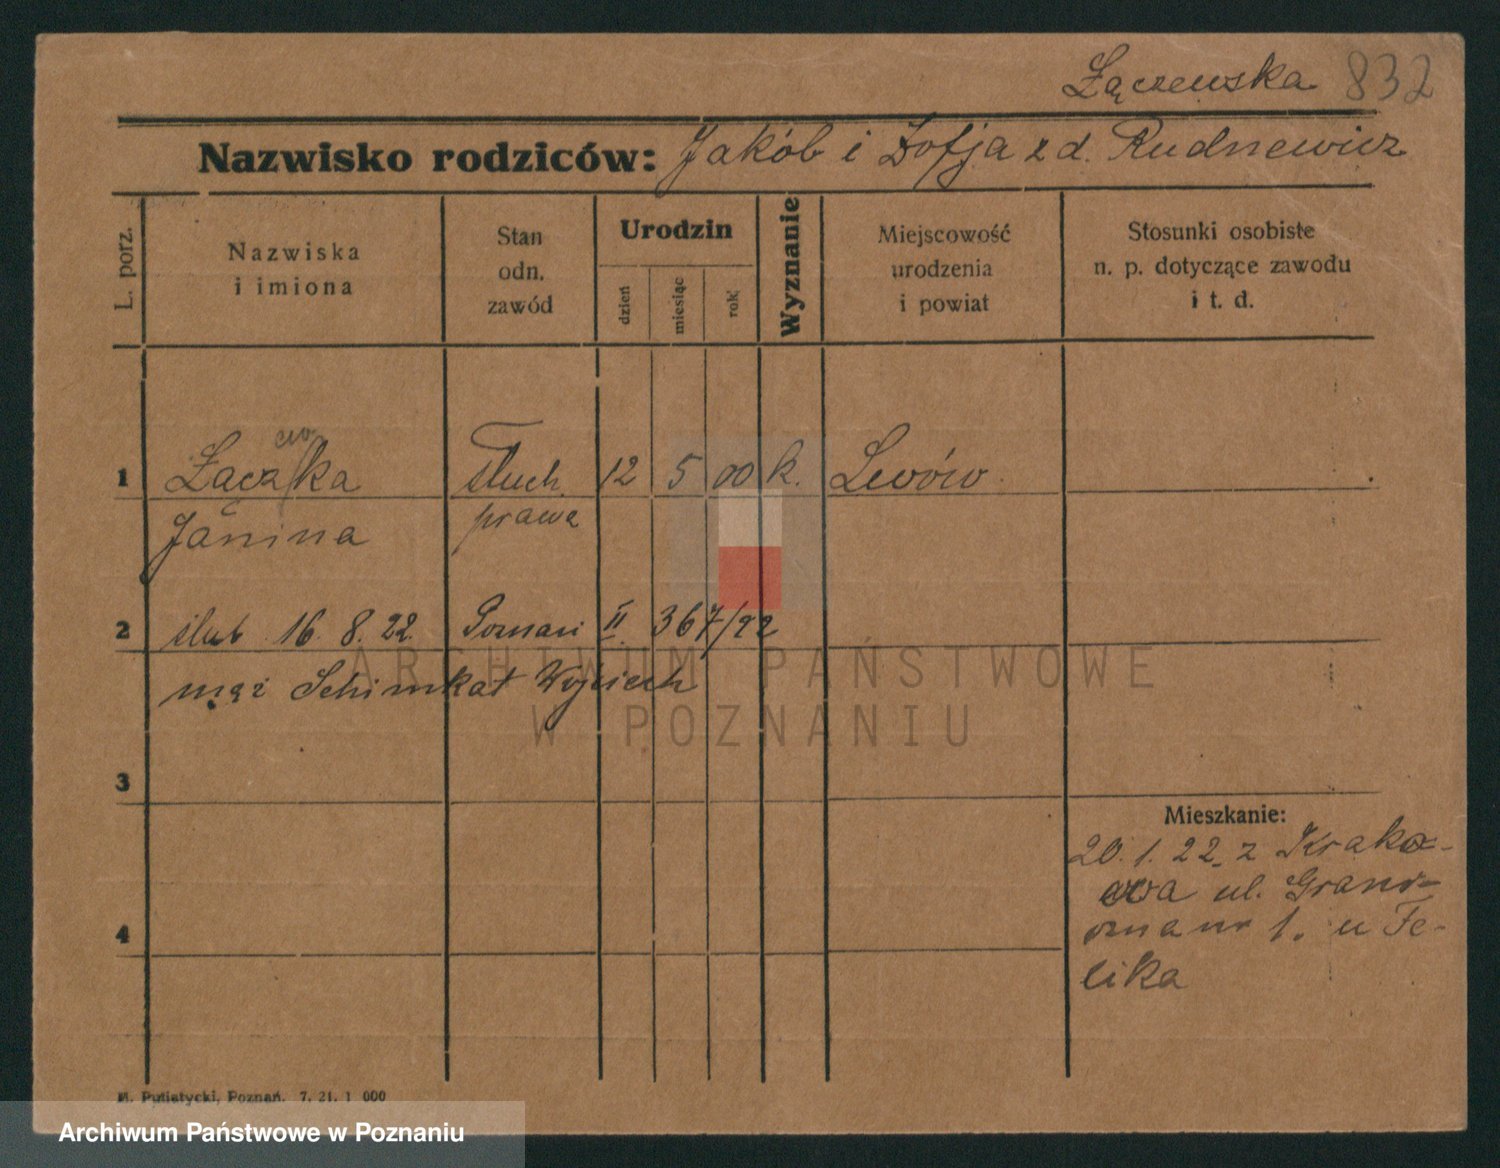 Łączewska 832
Nazwisko rodziców: Jakób i Zofja z d. Rudnewicz
L. porz.
Nazwiska
i imiona
Stan
odn.
zawód
Urodzin
dzień
miesiąc
rok
Wyznanie
Miejscowość
urodzenia
i powiat
Stosunki osobiste
n. p. dotyczące zawodu
i t. d.
1 12 5 00 k. Lwów
Janina prawa
2 ślub 16. 8. 22. Poznań II 367/22
mąż Schimkat Wojciech
3
Mieszkanie:
20. 1. 22. z Krako-
wa ul.
nr 1. u Fe-
4
liksa
M. Putiatycki, Poznań. 7. 21. 1 000
ARCHIWUM PAŃSTWOWE
W POZNANIU
Archiwum Państwowe w Poznaniu